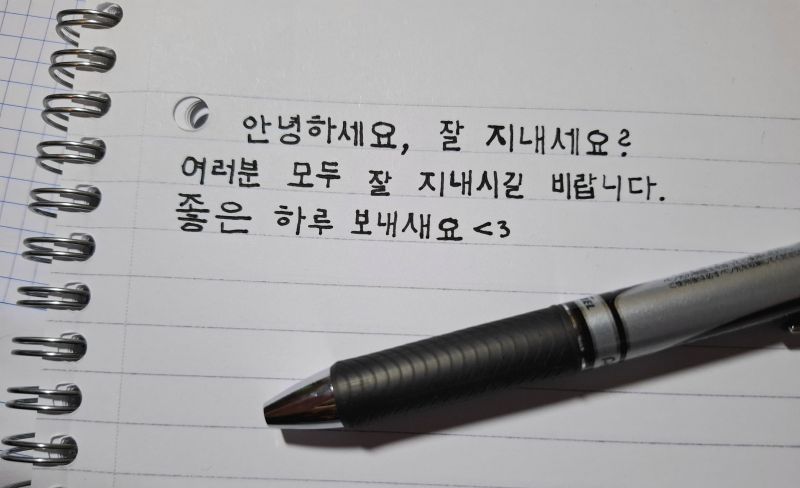 안녕하세요, 잘 지내세요?
여러분 모두 잘 지내시길 비랍니다.
좋은 하루 보내새요 <3